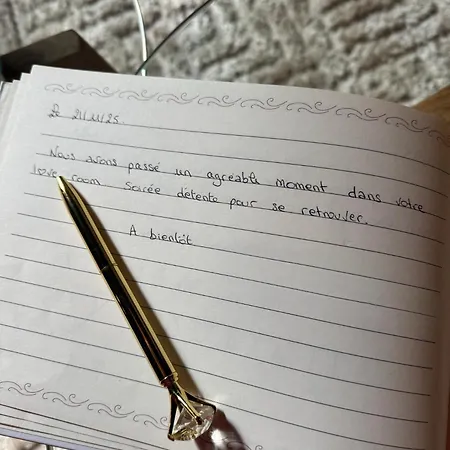 Le 21/11/25
Nous avons passé un agréable moment dans votre
love room soirée détente pour se retrouver.
A bientôt